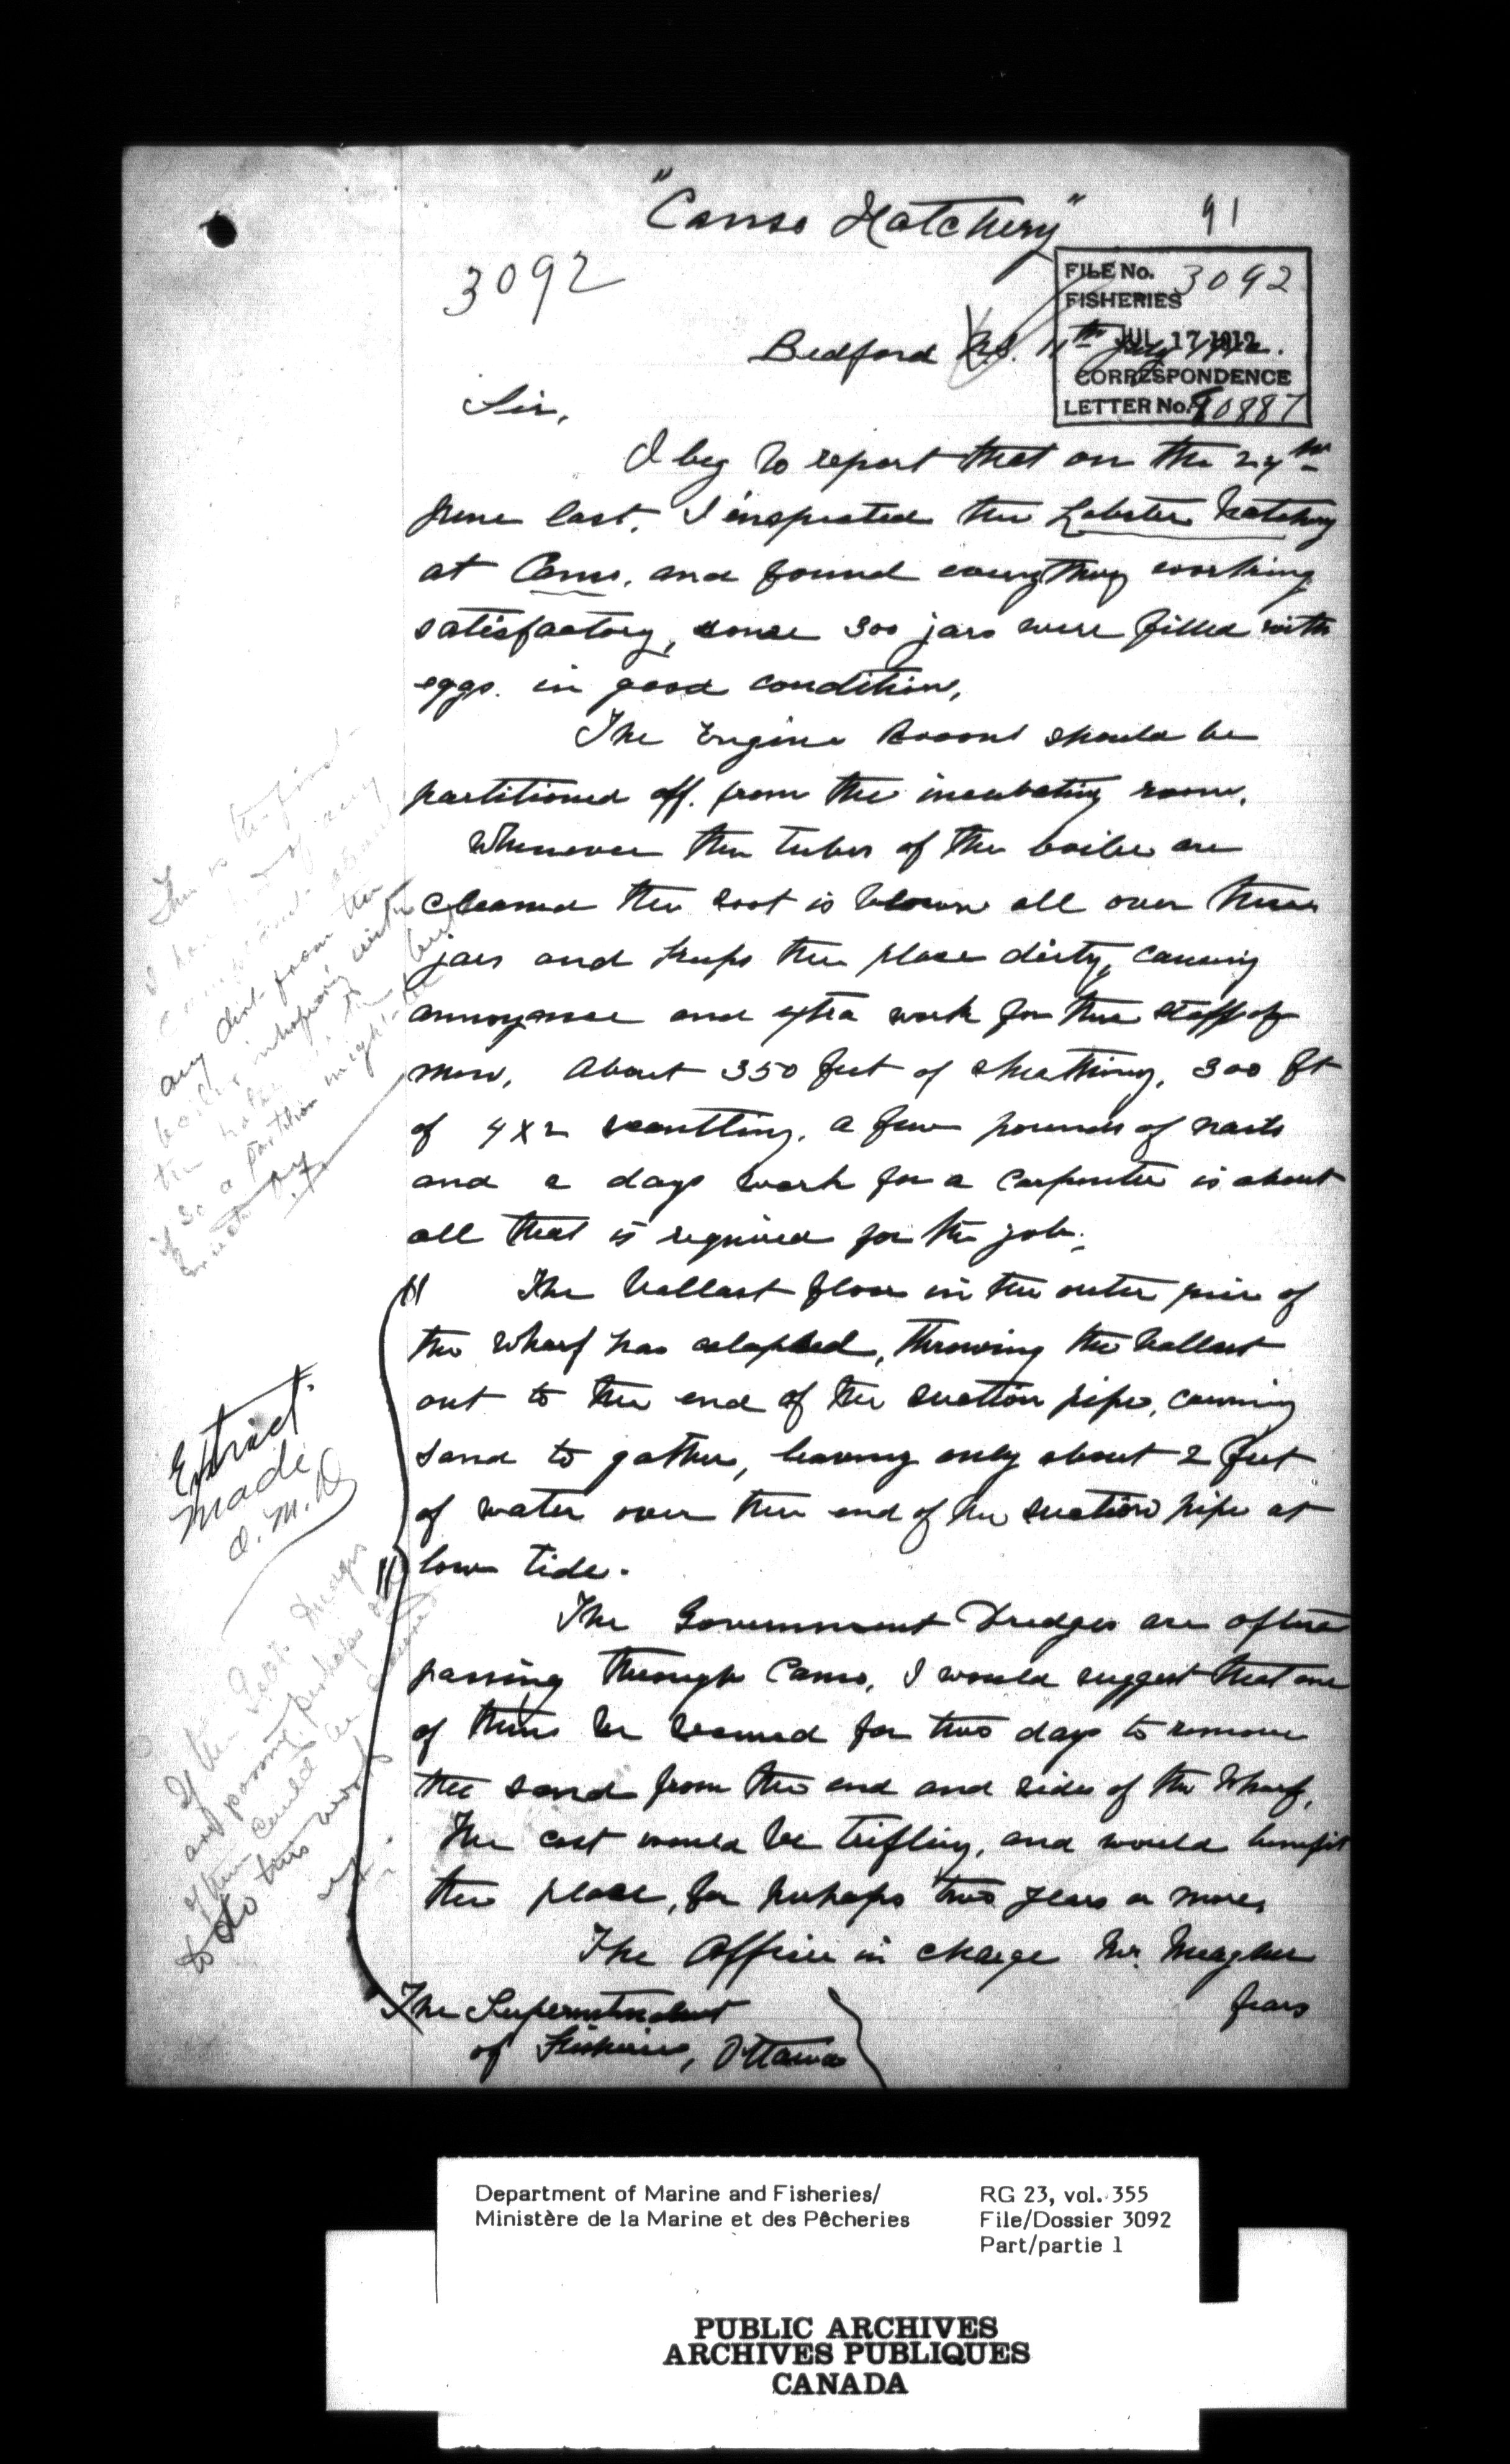 "Canso Hatchery"
91
3092
FILE No. 3092
FISHERIES
JUL 17 1912
CORRESPONDENCE
LETTER No. 10887
Bedford N.S. 11th July 1912.
Sir,
I beg to report that on the 24th
June last, I inspected the Lobster Hatchery
at Canso, and found everything working
satisfactory, some 300 jars were filled with
eggs. in good condition,
The Engine Room should be
partitioned off. from the incubating room.
Whenever the tubes of the boiler are
cleaned the soot is blown all over these
jars and keeps the place dirty, causing
annoyance and extra work for the staff of
men, About 350 feet of sheathing, 300 ft
of 4x2 scantling, a few pounds of nails
and a days work for a Carpenter is about
all that is required for the job.
" The ballast floor in the outer pier of
the wharf has colapsed, throwing the ballast
out to the end of the suction pipe, causing
sand to gather, leaving only about 2 feet
of water over the end of the suction pipe at
low tide. "
The Government Dredges are often
passing through Canso, I would suggest that one
of them be secured for two days to remove
the sand from the end and sides of the Wharf,
The cost would be trifling, and would benefit
the place, for perhaps two years or more,
The Officer in charge Mr. Meagher
fears
The Superintendent
of Fisheries, Ottawa
This is the first
I have of any
complaint about
any dirt from the
boiler interfering with
the
if so a partition might be
Extract
made
If the Govt Dredges
are passing perhaps one
of them could be secured
to do this work
Department of Marine and Fisheries/
Ministère de la Marine et des Pêcheries
RG 23, vol. 355
File/Dossier 3092
Part/partie 1
PUBLIC ARCHIVES
ARCHIVES PUBLIQUES
CANADA